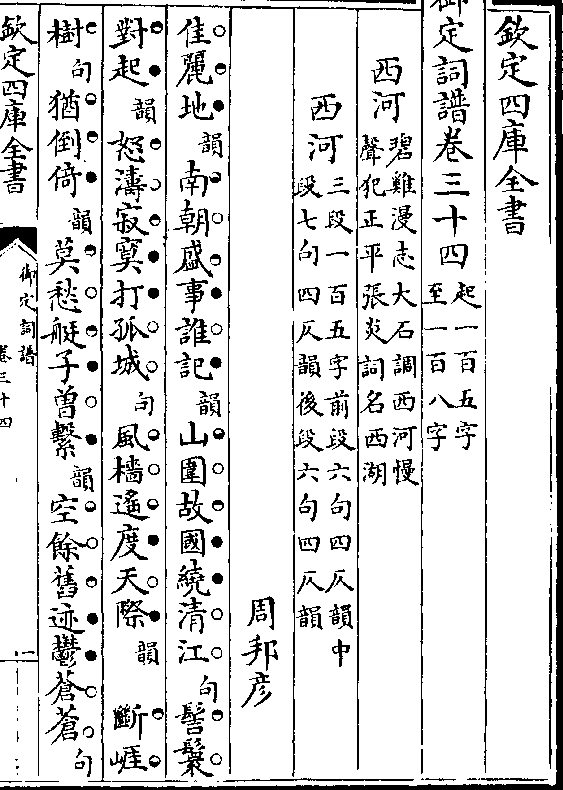 欽定四庫全書
御定詞譜卷三十四 起一百五字至一百八字
西河 碧雞漫志大石調西河慢聲犯正平張炎詞名西湖
西河 三段一百五字前段六句四仄韻中段七句四仄韻後段六句四仄韻
周邦彥
佳麗地韻南朝盛事誰記韻山圍故國繞清江句髻鬟
對起韻怒濤寂寞打孤城句風檣遙度天際韻 斷崖
樹句猶倒倚韻莫愁艇子曾繫韻空餘舊迹鬱蒼蒼句
欽定四庫全書
御定詞譜
卷三十四
一